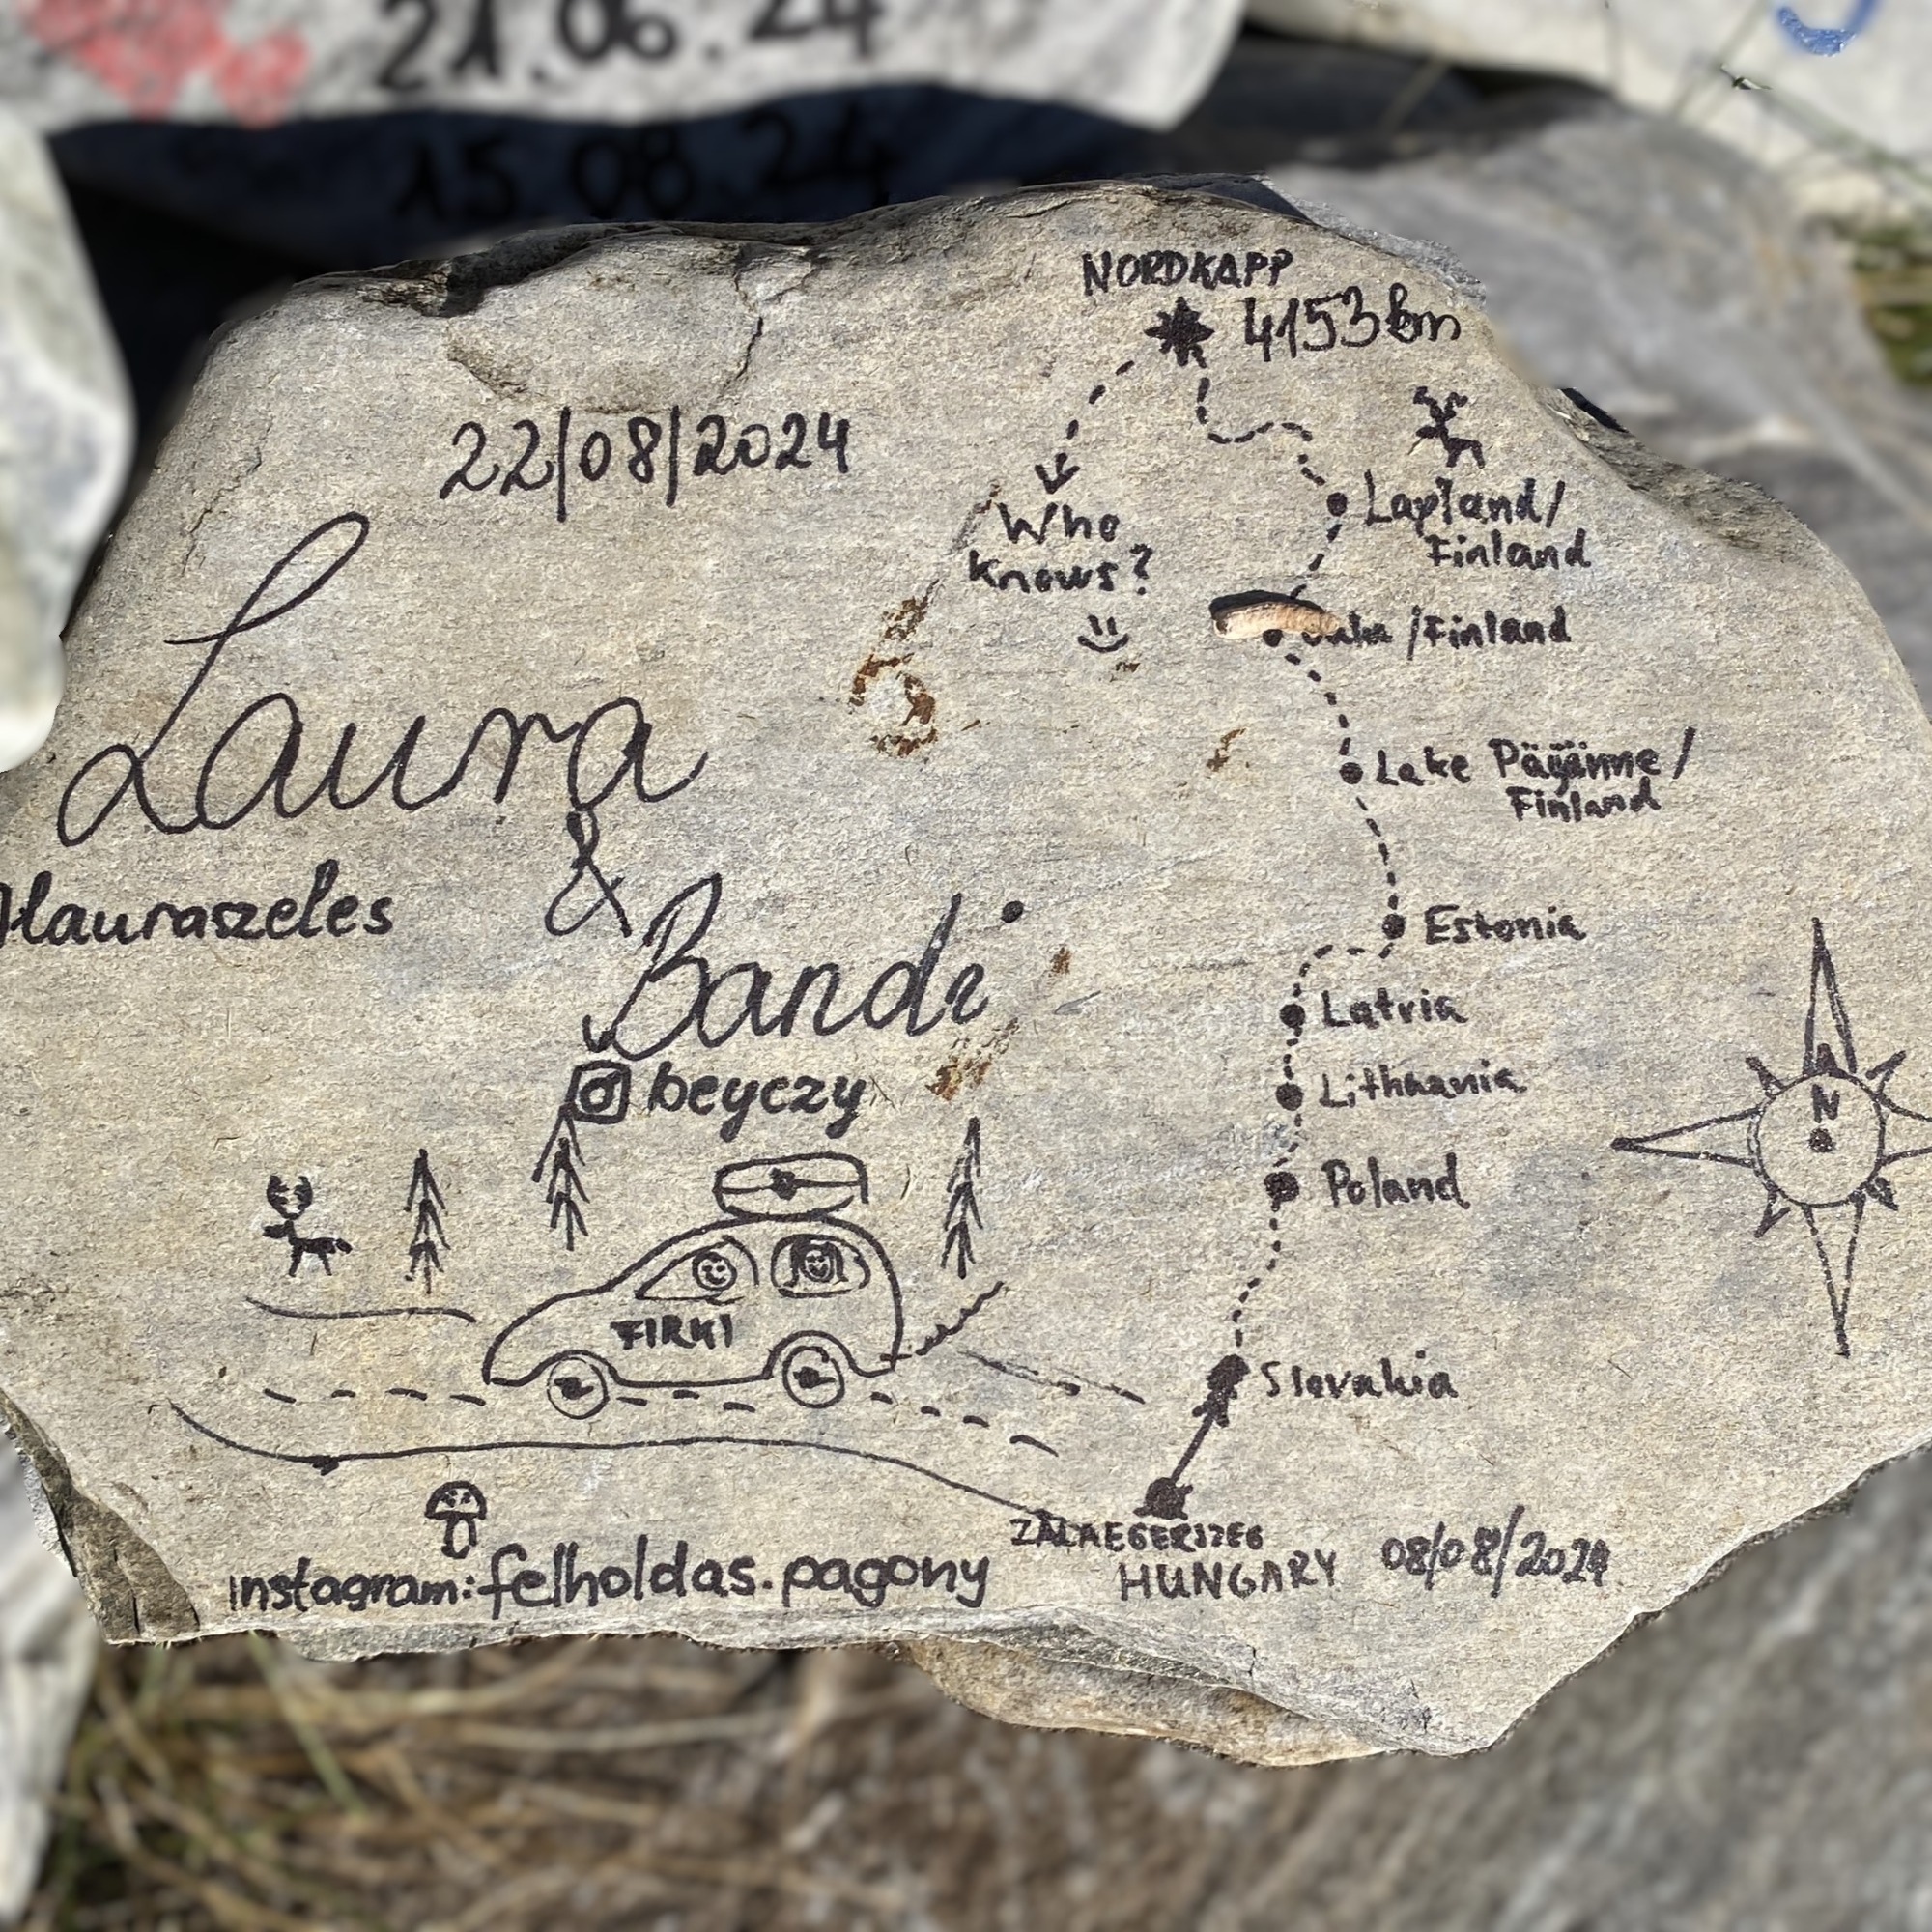 21.06.24
15.08.24
NORDKAPP
4153km
22/08/2024
Who
knows?
Lapland/
Finland
/Finland
Lake Päijänne/
Finland
Laura
&
Bandi
lauraszeles
beyczy
Estonia
Latvia
Lithuania
Poland
Slovakia
N
FIRKI
ZALAEGERSZEG
HUNGARY
08/08/2024
instagram: felholdas.pagony